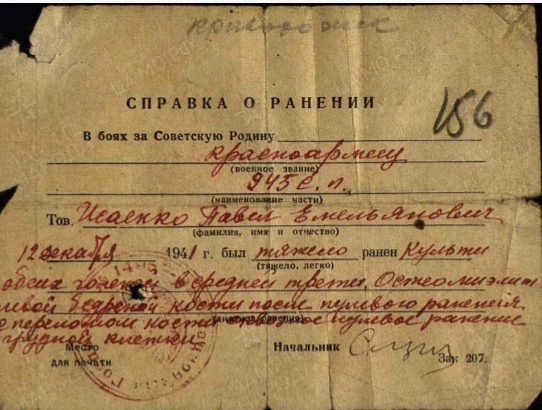 156
СПРАВКА О РАНЕНИИ
В боях за Советскую Родину
красноармеец
(военное звание)
945 с.п.
(наименование части)
Тов. Исаенко Павел Емельянович
(фамилия, имя и отчество)
12 декабря 1941 г. был тяжело ранен Культи
(тяжело, легко)
обеих голеней в средней трети. Остеомиэлит
левой бедреной кости после пулевого ранения
с переломом кости пулевое ранение
грудной клетки
Место
для печати
Начальник
Зак 207.